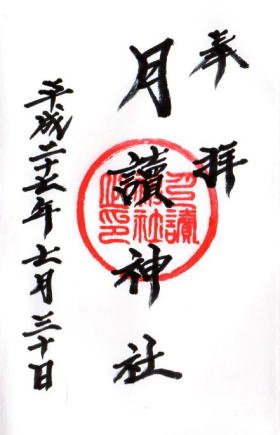 奉拝
月讀神社
平成二十五年七月三十日
月讀
神社
之印